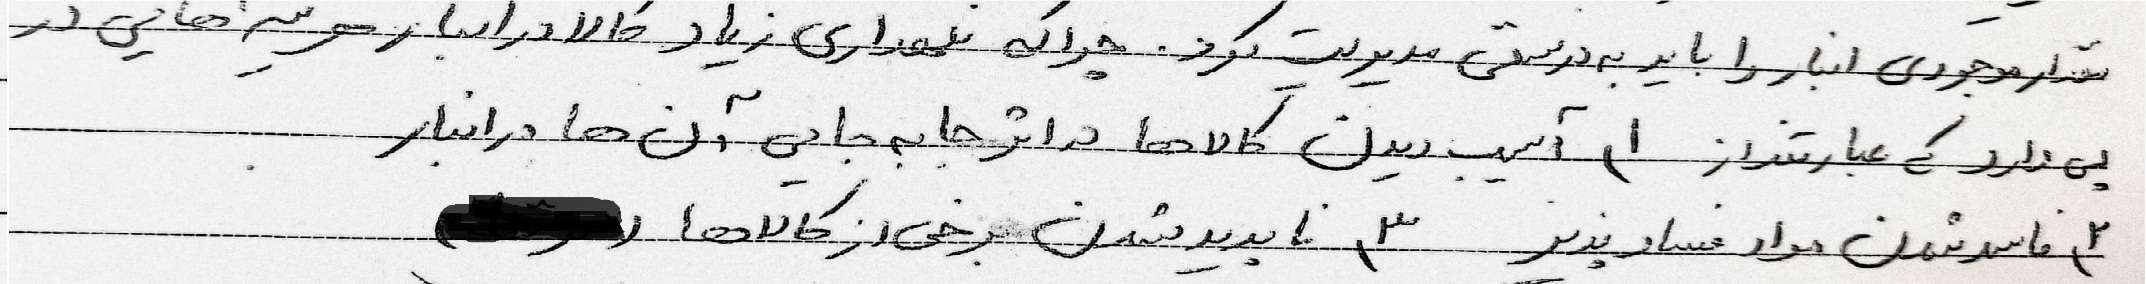 مقدار موجودی انبار را باید به درستی مدیریت کرد. چرا که نگهداری زیاد کالا در انبار هزینه هایی در
پی دارد که عبارتند از ۱) آسیب دیدن کالاها در اثر جا به جایی آن ها در انبار
۲) فاسد شدن مواد فساد پذیر ۳) ناپدید شدن برخی از کالاها (